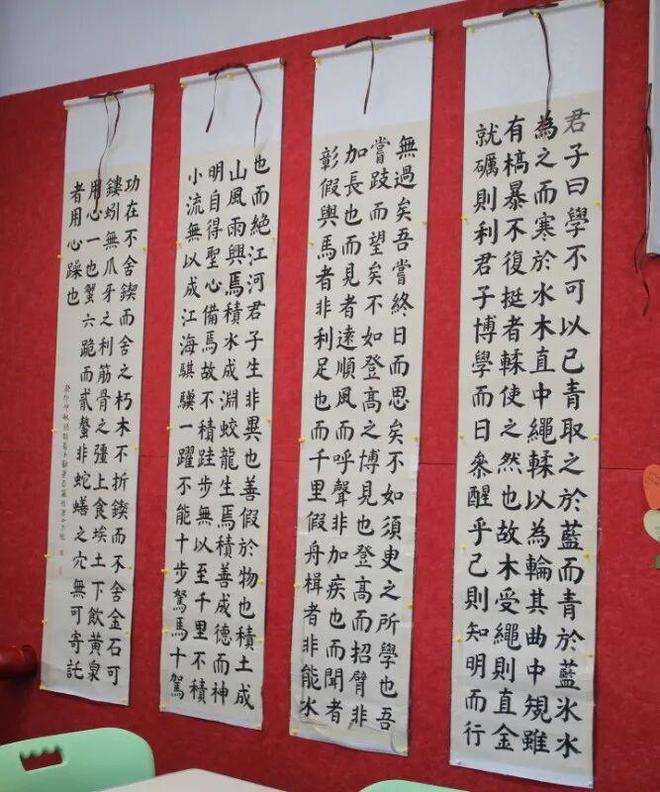 君子曰學不可以已青取之於藍而青於藍氷水
為之而寒於水木直中繩輮以為輪其曲中規雖
有槁暴不復挺者輮使之然也故木受繩則直金
就礪則利君子博學而日叅醒乎己則知明而行
無過矣吾嘗終日而思矣不如須臾之所學也吾
嘗跂而望矣不如登高之博見也登高而招臂非
加長也而見者遠順風而呼聲非加疾也而聞者
彰假輿馬者非利足也而千里假舟楫者非能水
也而絕江河君子生非異也善假於物也積土成
山風雨興焉積水成淵蛟龍生焉積善成德而神
明自得聖心備焉故不積跬步無以至千里不積
小流無以成江海騏驥一躍不能十步駑馬十駕
功在不舍鍥而舍之朽木不折鍥而不舍金石可
鏤蚓無爪牙之利筋骨之彊上食埃土下飲黃泉
用心一也蟹六跪而貳螯非蛇蟮之穴無可寄託
者用心躁也